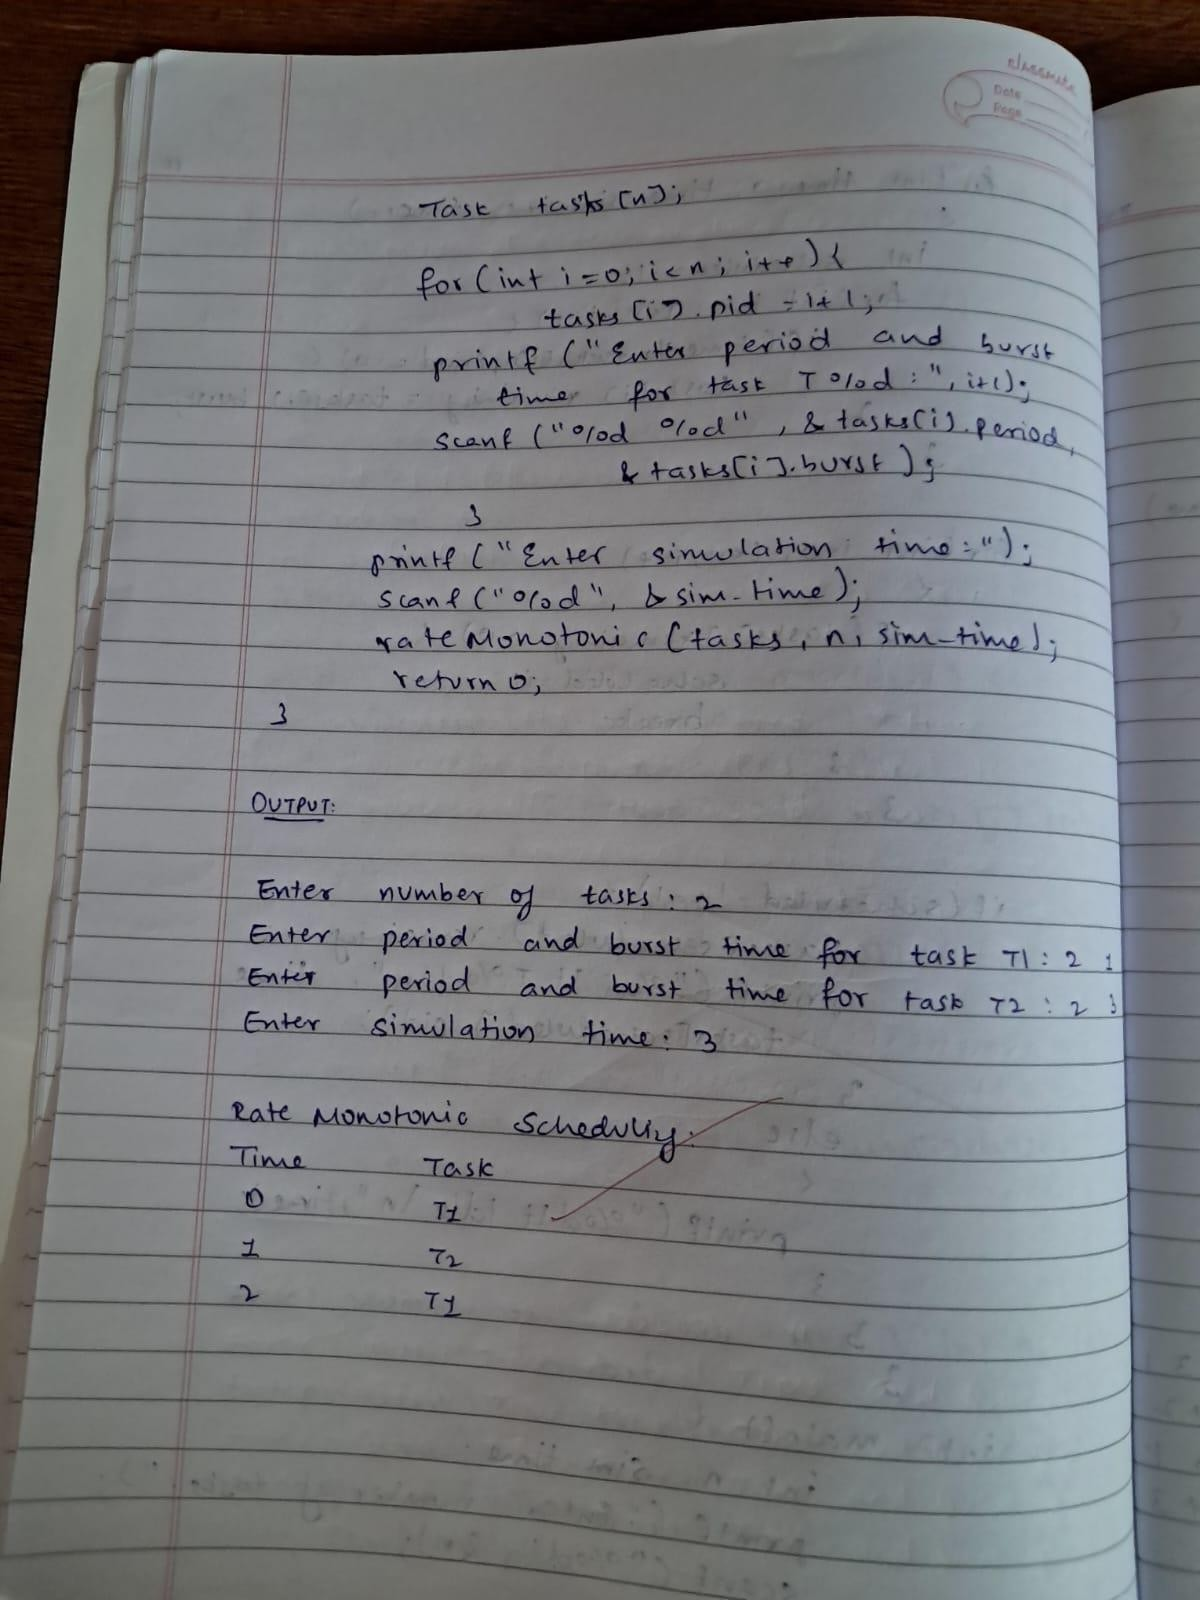 classmate
Date
Page
Task tasks [n];
for (int i=0; i<n; i++) {
tasks [i]. pid = i+1;
printf ("Enter period and burst
time for task T%d:", i+1);
scanf ("%d %d", & tasks[i].period,
& tasks[i].burst );
}
printf ("Enter simulation time:");
scanf ("%d", & sim-time);
rateMonotonic (tasks, n, sim-time);
return 0;
}
OUTPUT:
Enter number of tasks: 2
Enter period and burst time for task T1: 2 1
Enter period and burst time for task T2: 2 3
Enter simulation time: 3
Rate Monotonic Scheduling:
Time Task
0 T1
1 T2
2 T1